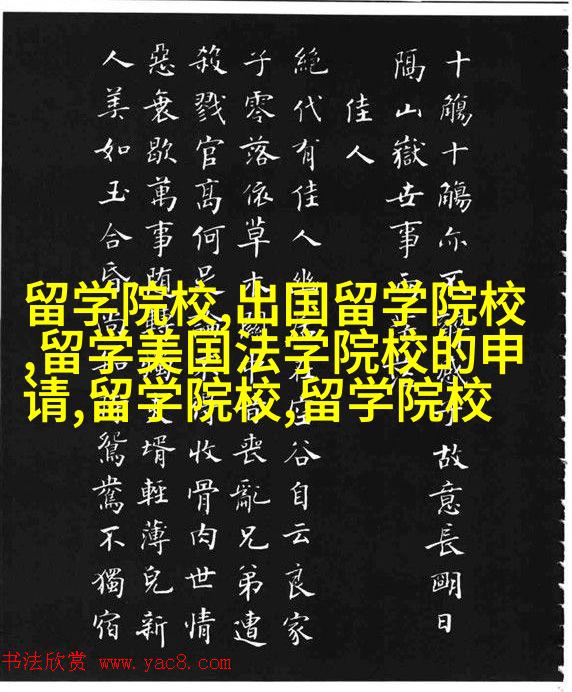 十觴十觴亦不感故意長明日
隔山嶽世事
佳人
絕代有佳人谷自云良家
子零落依草木喪亂兄弟遭
殺戮官高何足收骨肉世情
惡衰歇萬事壻輕薄兒新
人美如玉合昏尚鴛鴦不獨宿
留学院校,出国留学院校
,留学美国法学院校的申
请,留学院校,留学院校
书法欣赏 www.yac8.com